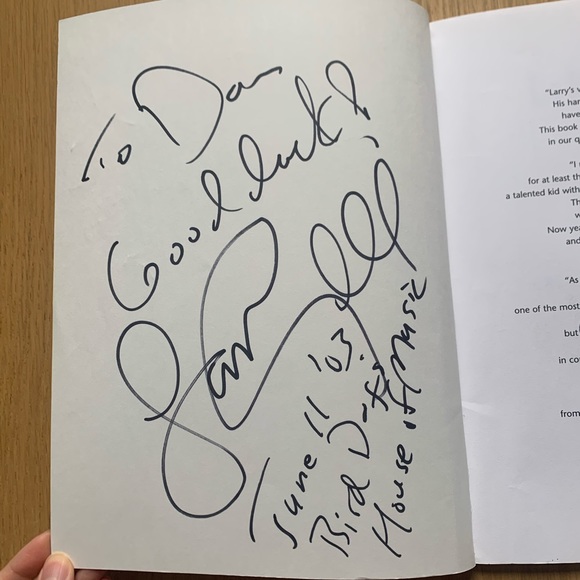 To Dan
Good luck!
June 11 '03.
Bird
House of Music
"Larry's
His
have
This book
in our
"I
for at least
a talented kid with
Now
and
"As
one of the most
but
from